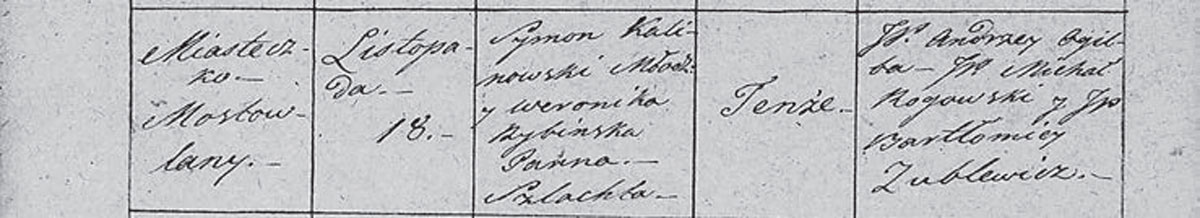 Miastecz-
ko.—
Mostow-
lany.—
Listopa-
da.—
18.—
Symon Kali-
nowski Młodz:
y Weronika
Rybinska
Panna.—
Szlachta—
Tenże.—
JP. Andrzey Ogil-
ba— JP. Michał
Rogowski y JP
Bartłomiey
Zublewicz.—